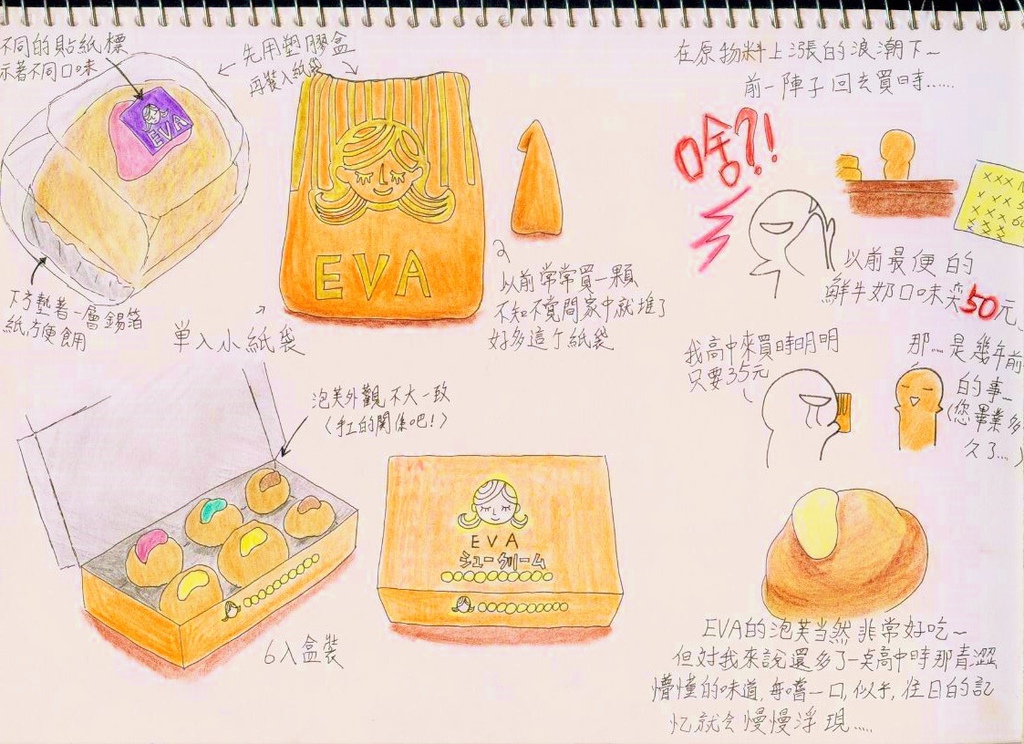 不同的貼紙標
示著不同口味
先用塑膠盒
再裝入紙袋
EVA
EVA
下方墊著一層錫箔
紙方便食用
單入小紙袋
以前常常買一顆
不知不覺間家中就堆了
好多這个紙袋
在原物料上漲的浪潮下~
前一陣子回去買時……
啥?!
XXX
以前最便的
鮮牛奶口味
50元
我高中來買時明明
只要35元
那……是幾年前
的事…
(您畢業多
久了…)
泡芙外觀不大一致
(手工的關係吧!)
6入盒裝
EVA
シュークリーム
EVA的泡芙當然非常好吃~
但對我來說還多了一点高中時那青澀
懵懂的味道,每嚐一口,似乎,往日的記
忆就会慢慢浮現……